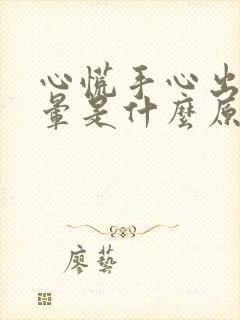 心慌手心出
暈是什麼原
廖藝